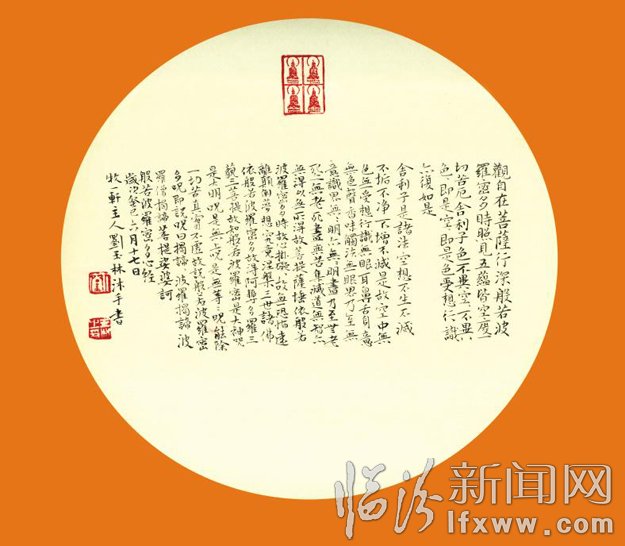 觀自在菩薩行深般若波
羅蜜多時照見五蘊皆空度一
切苦厄舍利子色不異空空不異
色即是空空即是色受想行識
亦復如是
舍利子是諸法空想不生不滅
不垢不淨不增不減是故空中無
色無受想行識無眼耳鼻舌身意
無色聲香味觸法無眼界乃至無
意識界無無明亦無無明盡乃至無老
死亦無老死盡無苦集滅道無智亦
無得以無所得故菩提薩埵依般若
波羅蜜多時故心無罣礙故無恐怖遠
離顛倒夢想究竟涅槃三世諸佛
依般若波羅蜜多故得阿耨多羅三
藐三菩提故知般若波羅蜜是大神咒
是大明咒是無上咒是無等咒能除
一切苦真實不虛故說般若波羅蜜
多咒即說咒曰揭諦揭諦波羅揭諦波
羅僧揭諦菩提娑婆訶
般若波羅蜜多心經
歲次癸巳六月十七日
牧一軒主人劉玉林沐手書
临汾新闻网
lfxww.com